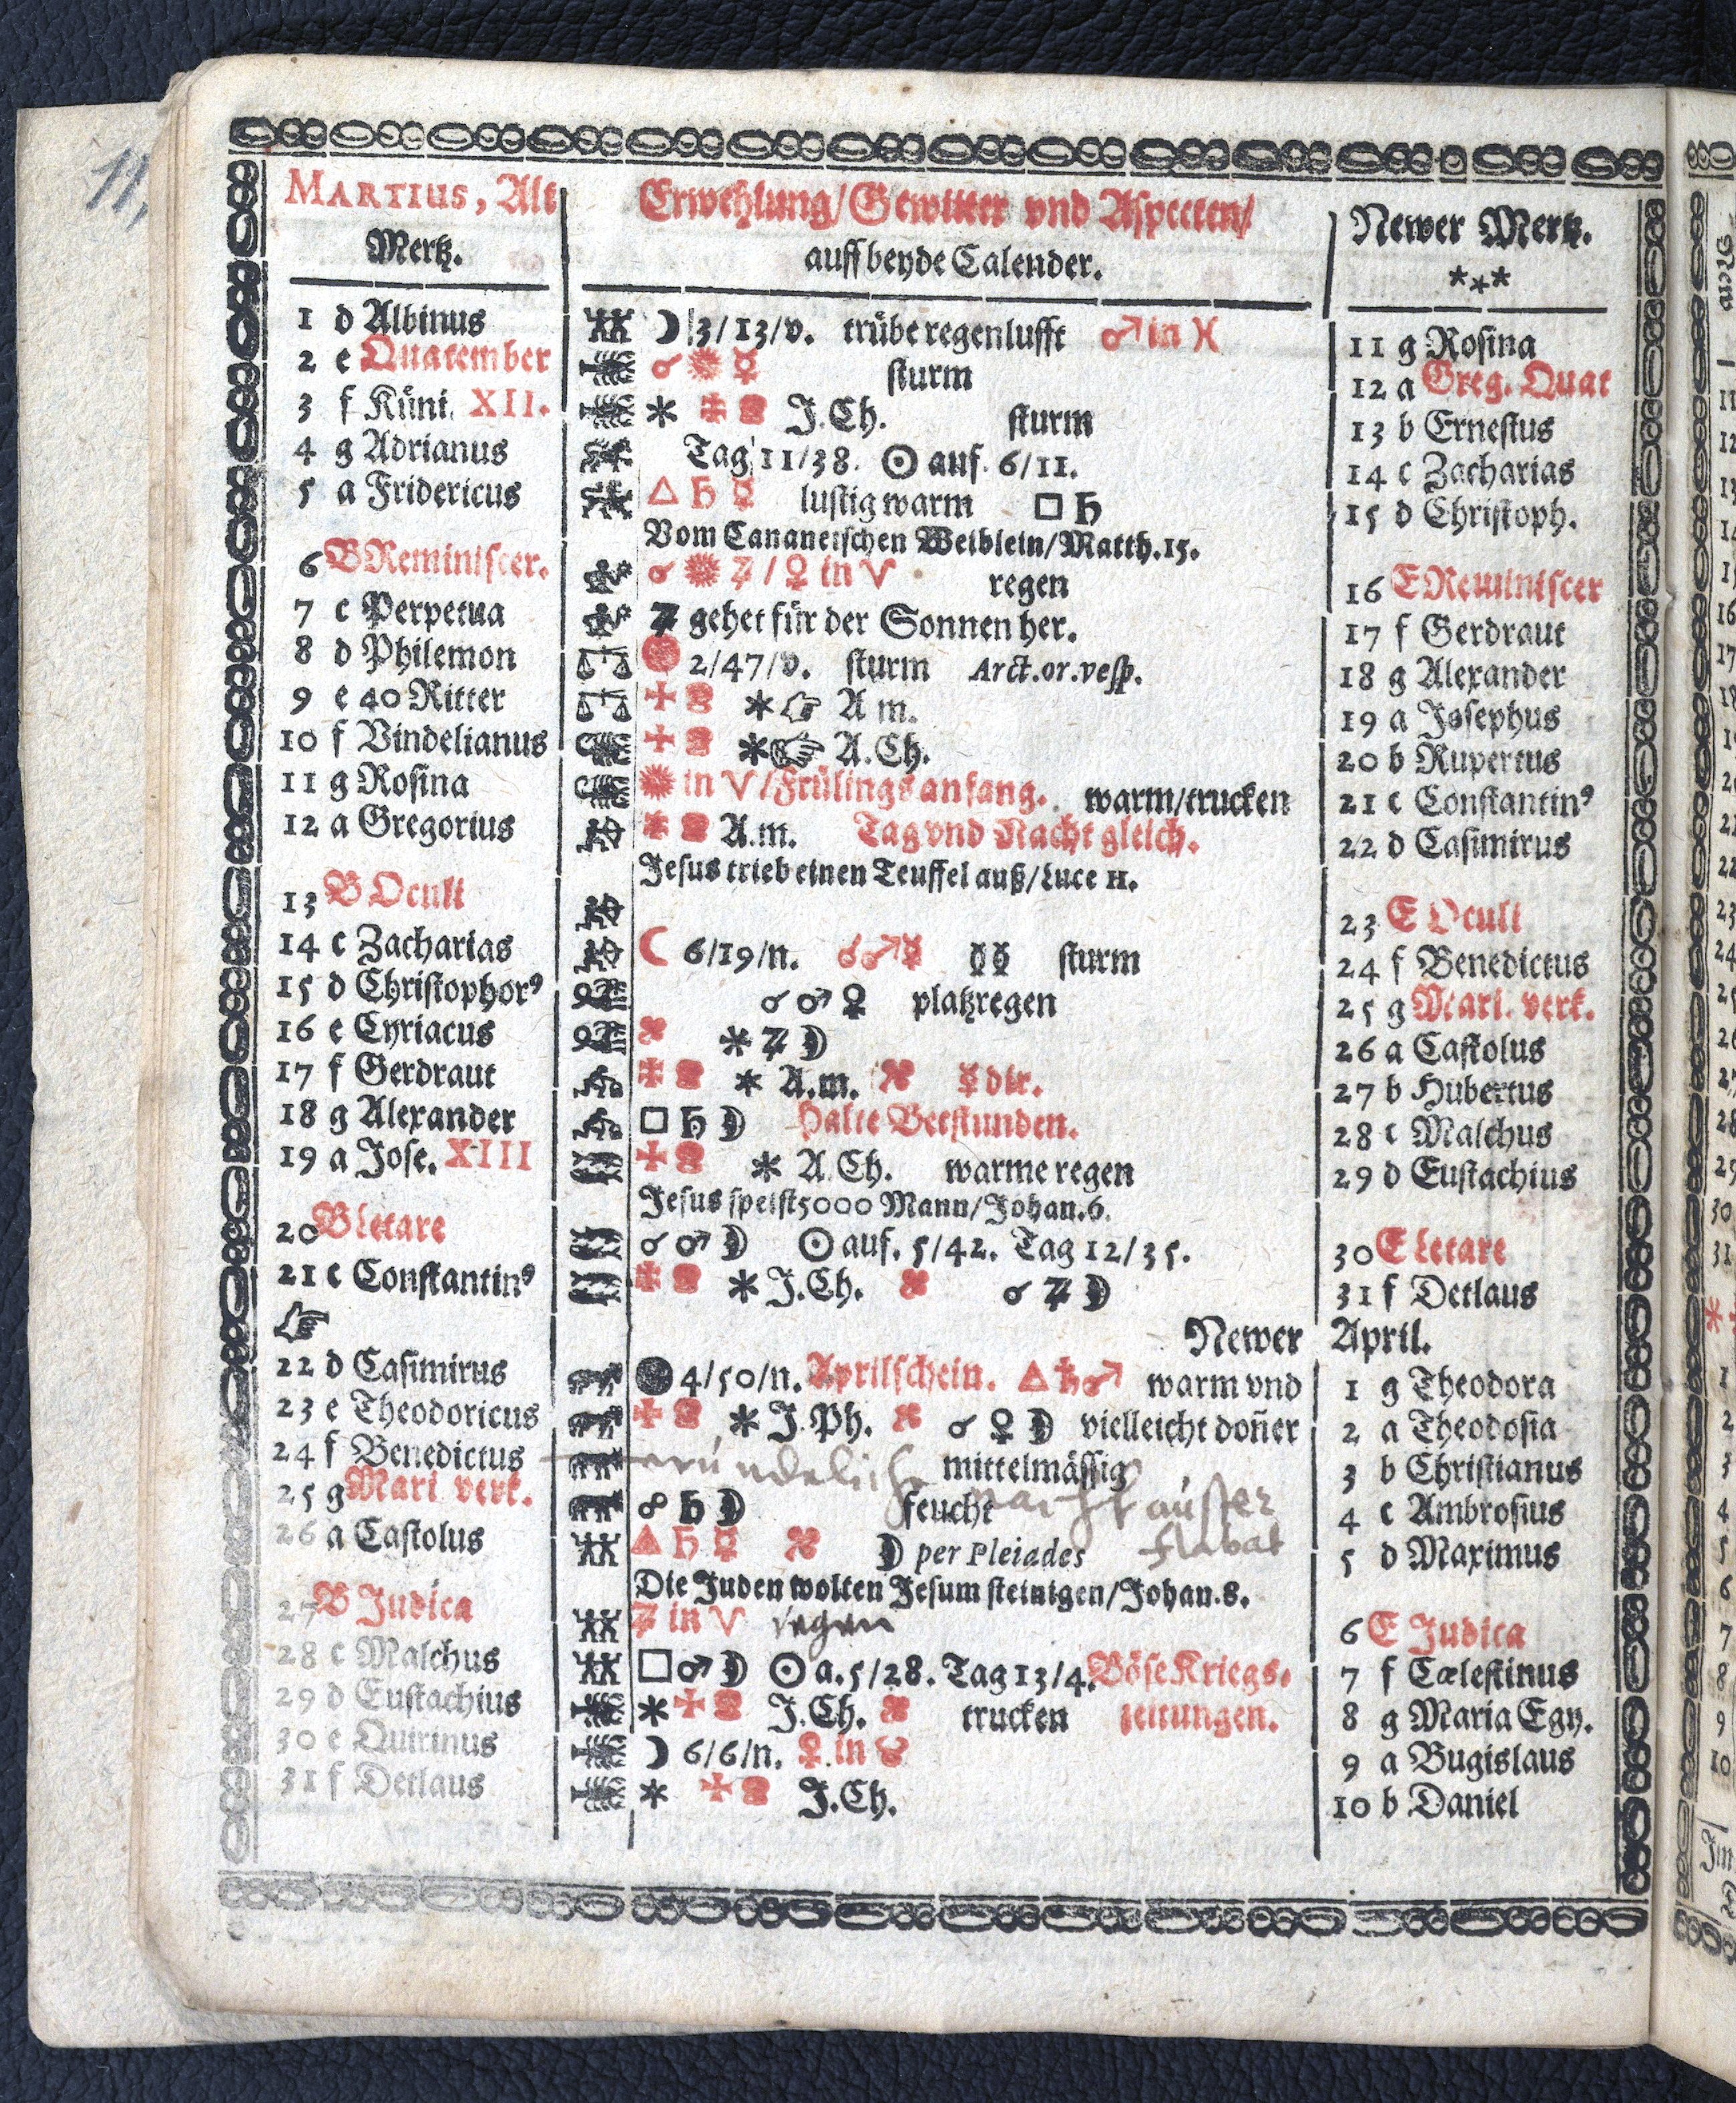 11,
MARTIUS, Alt
Mertz.
Erwehlung/Gewitter vnd Aspecten/
auff beyde Calender.
Newer Mertz.
***
1 d Albinus ☽ 3/13/v. trübe regenlufft ♂ in ♓ 11 g Rosina
2 e Quatember ☌ ☿ sturm 12 a Greg. Quat
3 f Küni. XII. * J.Ch. sturm 13 b Ernestus
4 g Adrianus Tag 11/38. ☉ auf. 6/11. 14 c Zacharias
5 a Fridericus △ ♄ ☿ lustig warm □ ♄ 15 d Christoph.
Vom Cananeischen Weiblein/Matth.15.
6 B Reminiscer. ☌ ♃ / ♀ in ♈ regen 16 E Reminiscer
7 c Perpetua ♃ gehet für der Sonnen her. 17 f Gerdraut
8 d Philemon 2/47/v. sturm Arct.or.vesp. 18 g Alexander
9 e 40 Ritter * ☞ A m. 19 a Josephus
10 f Vindelianus * ☞ A.Ch. 20 b Rupertus
11 g Rosina in ♈/Frülings anfang. warm/trucken 21 c Constantin⁹
12 a Gregorius A.m. Tag vnd Nacht gleich. 22 d Casimirus
Jesus trieb einen Teuffel auß/Luce 11.
13 B Oculi 23 E Oculi
14 c Zacharias ☾ 6/19/n. ☌ ♂ ☿ ☿ ☿ sturm 24 f Benedictus
15 d Christophor⁹ ☌ ♂ ♀ platzregen 25 g Mari. verk.
16 e Cyriacus * ♃ ☽ 26 a Castolus
17 f Gerdraut * A.m. ☿ dir. 27 b Hubertus
18 g Alexander □ ♄ ☽ Halte Betstunden. 28 c Malchus
19 a Jose. XIII * A.Ch. warme regen 29 d Eustachius
Jesus speist 5000 Mann/Johan.6.
20 B Letare ☌ ♂ ☽ ☉ auf. 5/42. Tag 12/35. 30 E Letare
21 c Constantin⁹ * J.Ch. ☌ ♃ ☽ 31 f Detlaus
☞ Newer April.
22 d Casimirus 4/50/n. Aprilschein. △ ♄ ♂ warm vnd 1 g Theodora
23 e Theodoricus * J.Ph. ☌ ♀ ☽ vielleicht doñer 2 a Theodosia
24 f Benedictus mittelmässig 3 b Christianus
25 g Mari verk. ☍ ♄ ☽ feucht auster 4 c Ambrosius
26 a Castolus △ ♄ ☿ ☽ per Pleiades flabat 5 d Maximus
Die Juden wolten Jesum steinigen/Johan.8.
27 B Judica ♃ in ♈ regen 6 E Judica
28 c Malchus □ ♂ ☽ ☉ a. 5/28. Tag 13/4. Böse Kriegs- 7 f Cœlestinus
29 d Eustachius * J.Ch. trucken zeitungen. 8 g Maria Egy.
30 e Quirinus ☽ 6/6/n. ♀ in ♉ 9 a Bugislaus
31 f Detlaus * J.Ch. 10 b Daniel